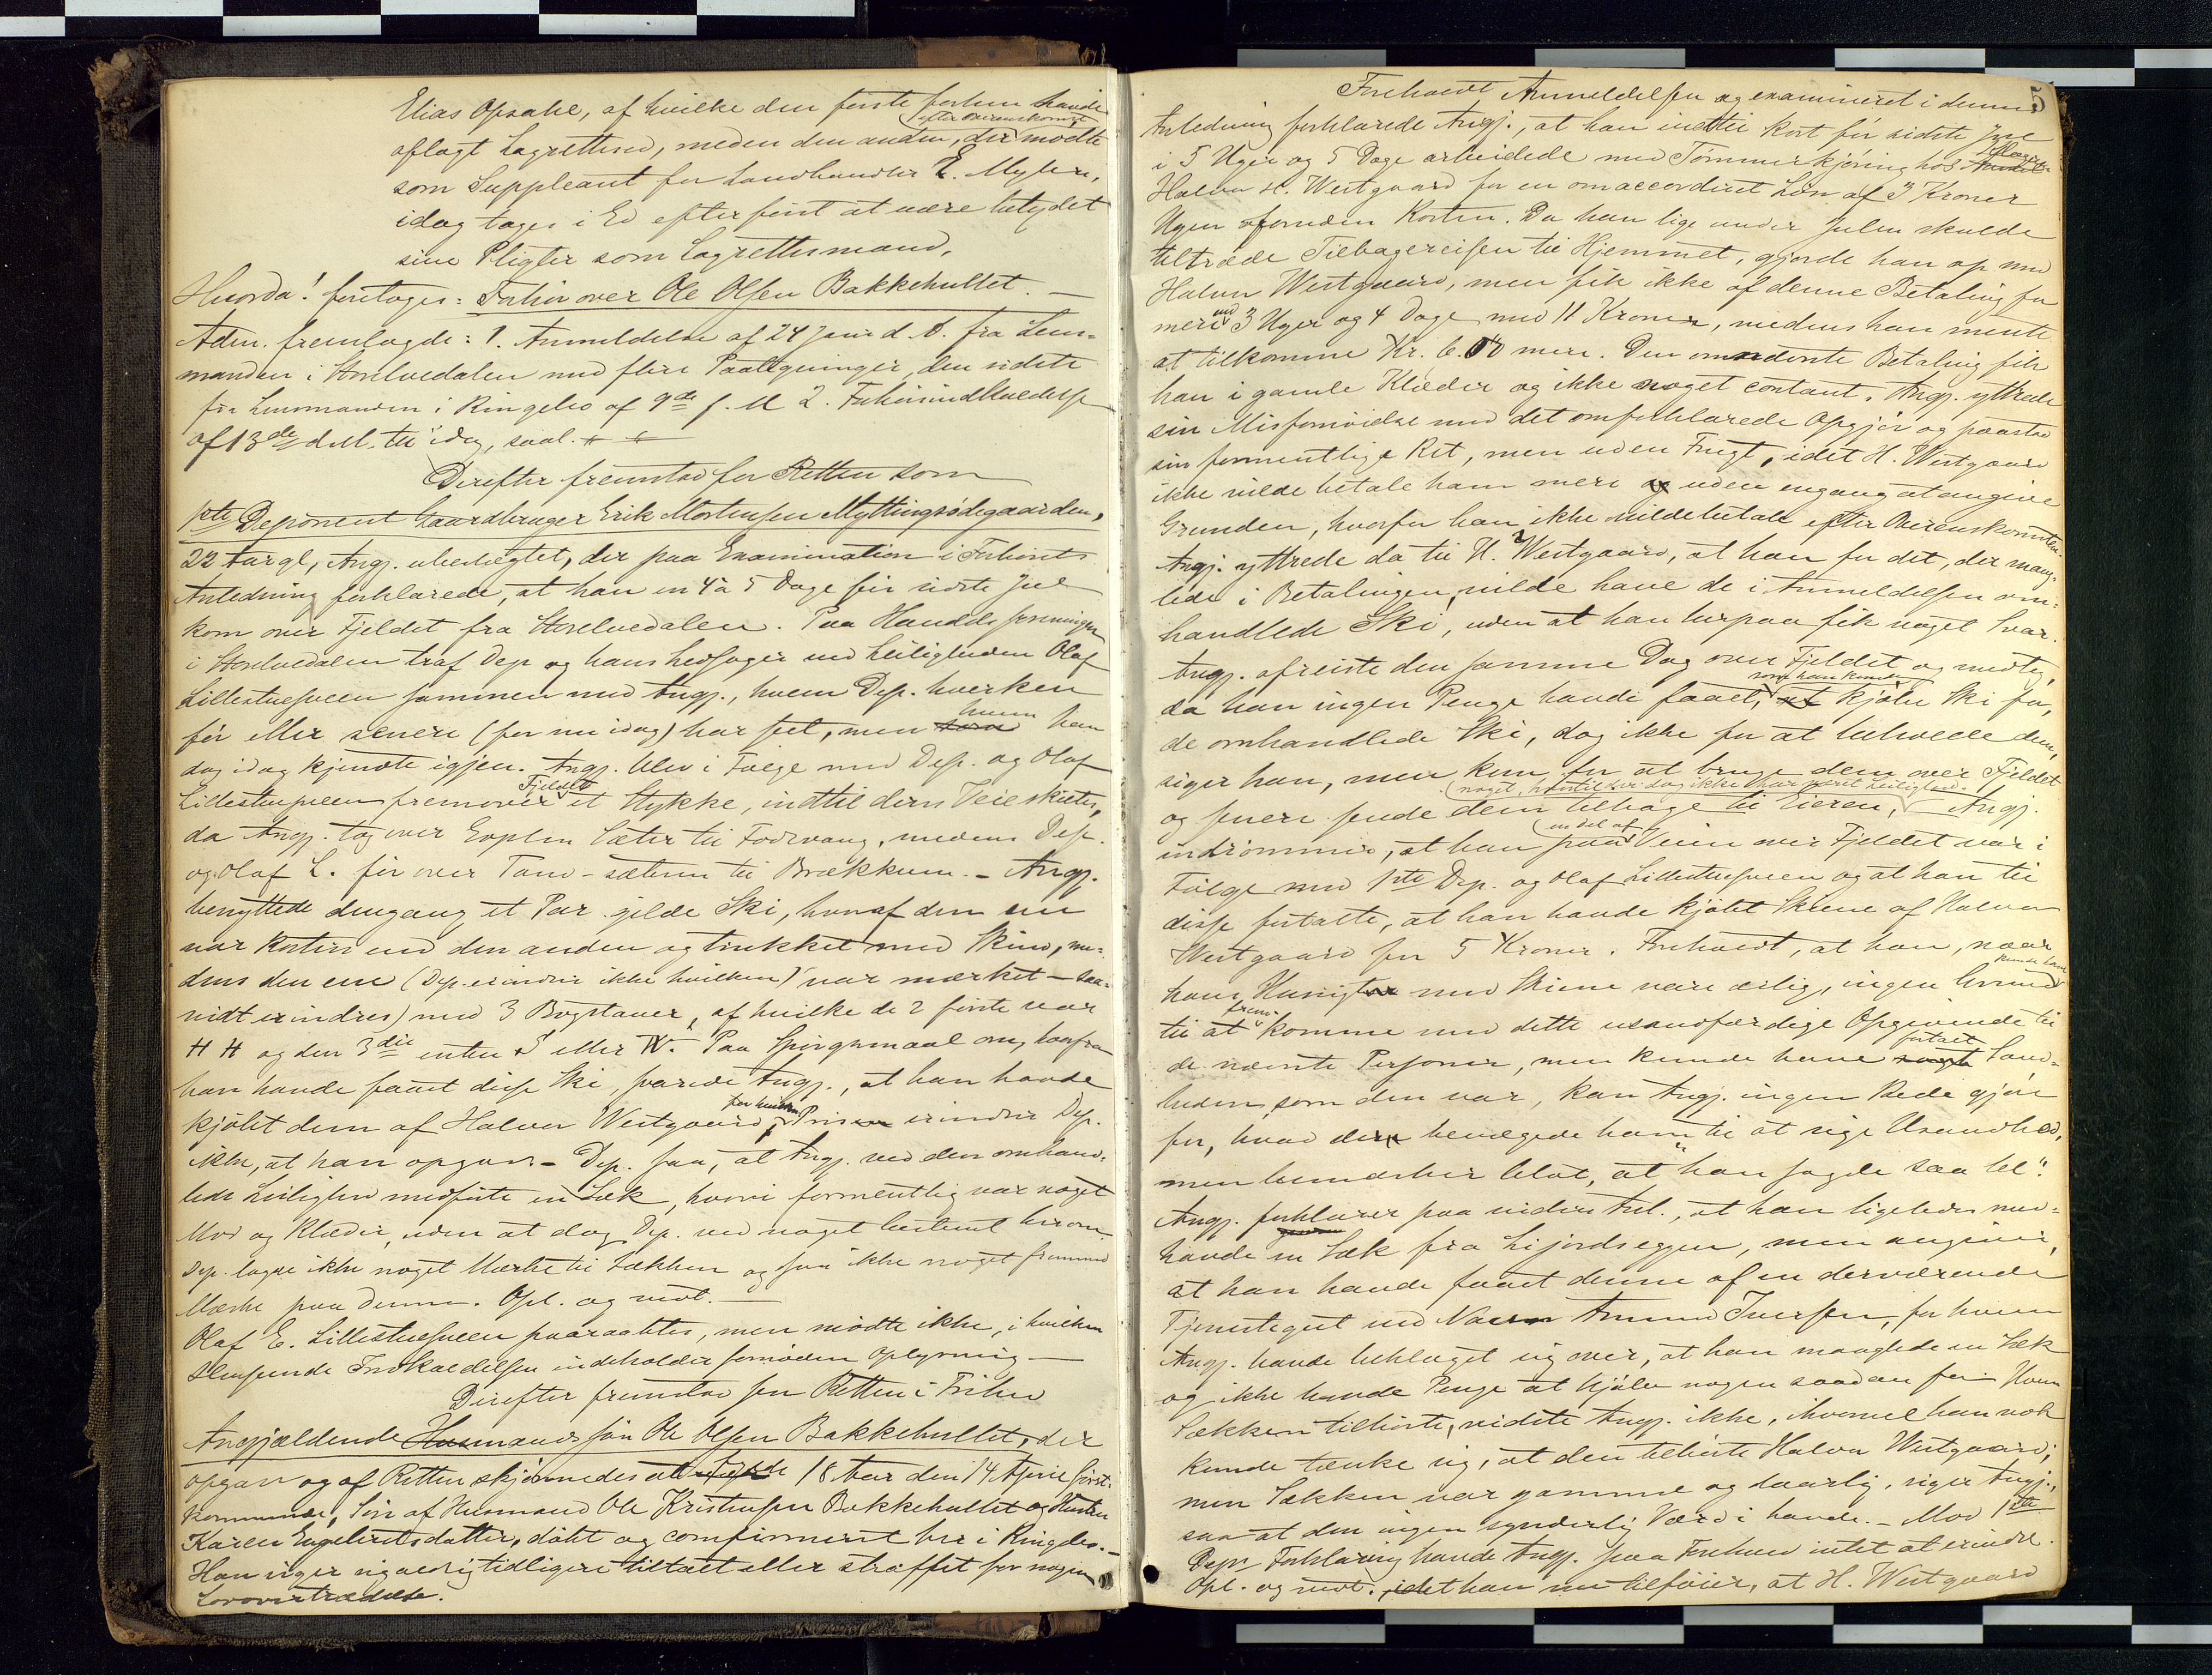 Elias Opsahl, af hvilke den første forhen havde
aflagt Lagrettesed, meden den anden, der efter Overenskomst mødte
som Suppleant for Landhandler E. Myhre,
idag toges i Ed efter først at være betydet
sine Pligter som Lagrettesmand.
Hvorda! foretoges: Forhør over Ole Olsen Bakkehullet. —
Adm. fremlagde: 1. Anmeldelse af 24 Januar d. A. fra Lens-
manden i Storelvedalen med flere Paategninger, den sidste
fra Lensmanden i Ringebo af 9de f. M. 2. Forhørsindkaldelse
af 13de d.M. til idag, saal.
Derefter fremstod for Retten som
1ste Deponent Gaardbruger Erik Mortensen Myttingsødegaarden,
22 Aar gl, Angj. ubeslegtet, der paa Examination i Forhørets
Anledning forklarede, at han en 4 à 5 Dage før sidste Jul
kom over Fjeldet fra Storelvedalen. Paa Handelsforeningen
i Storelvedalen traf Dep. og hans Ledsager ved Leiligheden Olaf
Lillestuesveen sammen med Angj., hvem Dep. hverken
før eller senere (før nu idag) har seet, men som hvem han
dog idag kjendte igjen. Angj. blev i Følge med Dep. og Olaf
Lillestuesveen fremover Fjeldet et Stykke, indtil deres Veie skiltes,
da Angj. tog over Goplen Sæter til Fodvang, medens Dep.
og Olaf L. før over Tand-sæteren til Brækkum. — Angj.
benyttede dengang et Par gilde Ski, hvoraf den ene
var kortere end den anden og trukket med Skind, me-
dens den ene (Dep. erindrer ikke hvilken) var mærket — saa-
vidt erindres) med 3 Bogstaver, af hvilke de 2 første var
H H og den 3die enten S eller W. Paa Spørgsmaal om, hvorfra
han havde faaet disse Ski, svarede Angj., at han havde
kjøbt dem af Halvor Westgaard, for hvilken Prisen erindrer Dep.
ikke, at han opgav. — Dep. saa, at Angj. ved den omhand-
lede Leilighed medførte en Sæk, hvori formentlig var noget
Mad og Klæder, uden at dog Dep. ved noget bestemt herom.
Dep. lagde ikke noget Mærke til Sækken og saa ikke noget fremmed
Mærke paa denne. Opl. og vedt. —
Olaf E. Lillestuesveen paaraabtes, men mødte ikke, i hvilken
Henseende Indkaldelsen indeholder fornøden Oplysning —
Derefter fremstod for Retten i Frihed
Angjældende Husmandssøn Ole Olsen Bakkehullet, der
opgav og af Retten skjønnedes at fylde 18 Aar den 14 April først-
kommende, Søn af Husmand Ole Kristensen Bakkehullet og Hustru
Karen Engebretsdatter, døbt og confirmeret her i Ringebo. —
Han siger sig aldrig tidligere tiltalt eller straffet for nogen
Lovovertrædelse.
5
Foreholdt Anmeldelsen og examineret i denne
Anledning forklarede Angj., at han indtil kort før sidste Jul
i 5 Uger og 5 Dage arbeidede med Tømmerkjøring hos Anmeld- Klageren
Halvor H. Westgaard for en omaccorderet Løn af 3 Kroner
Ugen foruden Kosten. Da han lige under Julen skulde
tiltræde Tilbagereisen til Hjemmet, gjorde han op med
Halvor Westgaard, men fik ikke af denne Betaling for
mere end 3 Uger og 4 Dage med 11 Kroner, medens han mente
at tilkomme Kr. 6.00 mere. Den omvidnte Betaling fik
han i gamle Klæder og ikke noget contant. Angj. yttrede
sin Misfornøielse med det omforklarede Opgjør og paastod
sin formentlige Ret, men uden Frugt, idet H. Westgaard
ikke vilde betale ham mere og uden engang at angive
Grunden, hvorfor han ikke vilde betale efter Overenskomsten.
Angj. yttrede da til H. Westgaard, at han for det, der mang-
lede i Betalingen, vilde have de i Anmeldelsen om-
handlede Ski, uden at han herpaa fik noget Svar.
Angj. afreiste den samme Dag over Fjeldet og medtog,
da han ingen Penge havde faaet, som han kunde kjøbe Ski for,
de omhandlede Ski, dog ikke for at beholde dem,
siger han, men kun for at bruge dem over Fjeldet
og senere sende dem tilbage til Eieren, noget, hvortil der dog ikke har været Leilighed. Angj.
indrømmer, at han paa en del af Veien over Fjeldet var i
Følge med 1ste Dep. og Olaf Lillestuesveen og at han til
disse fortalte, at han havde kjøbt Skiene af Halvor
Westgaard for 5 Kroner. Foreholdt, at han, naar
hans Hensigter med Skiene vare ærlig, ingen Grund kunde have
til at komme frem med dette usandfærdige Opgivende til
de nævnte Personer, men kunde have sagt fortalt Sand-
heden som den var, kan Angj. ingen Rede gjøre
for, hvad der bevægede ham til at sige Usandhed,
men bemærker blot, at "han sagde saa lel".
Angj. forklarer paa videre Anl., at han ligeledes med-
havde en Sæk fra Lijordseggen, men angiver,
at han havde faaet denne af en derværende
Tjenestegut ved Navn Amund Iversen, for hvem
Angj. havde beklaget sig over, at han manglede en Sæk
og ikke havde Penge at kjøbe nogen saadan for. Hvem
Sækken tilhørte, vidste Angj. ikke, ihvorvel han nok
kunde tænke sig, at den tilhørte Halvor Westgaard;
men Sækken var gammel og daarlig, siger Angj.,
saa at den ingen synderlig Værdi havde. — Mod 1ste
Deps Forklaring havde Angj. paa Forehold intet at erindre.
Opl. og vedt., idet han nu tilføier, at H. Westgaard